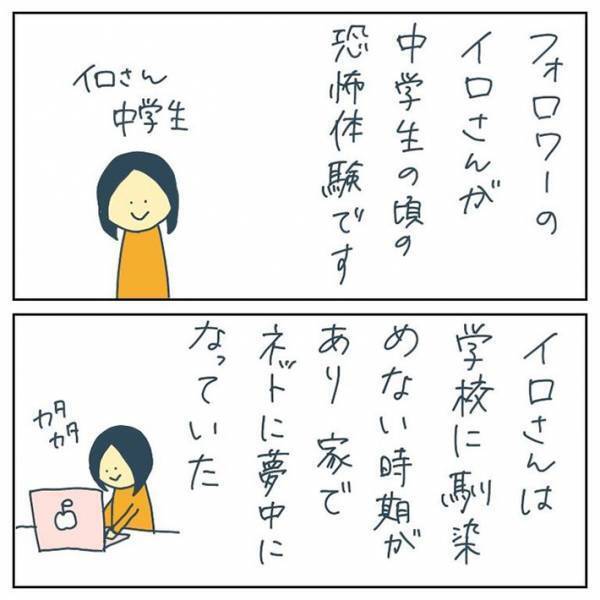 フォロワーの
イロさんが
中学生の頃の
恐怖体験です
イロさん
中学生
イロさんは
学校に馴染
めない時期が
あり 家で
ネットに夢中に
なっていた
カタ
カタ